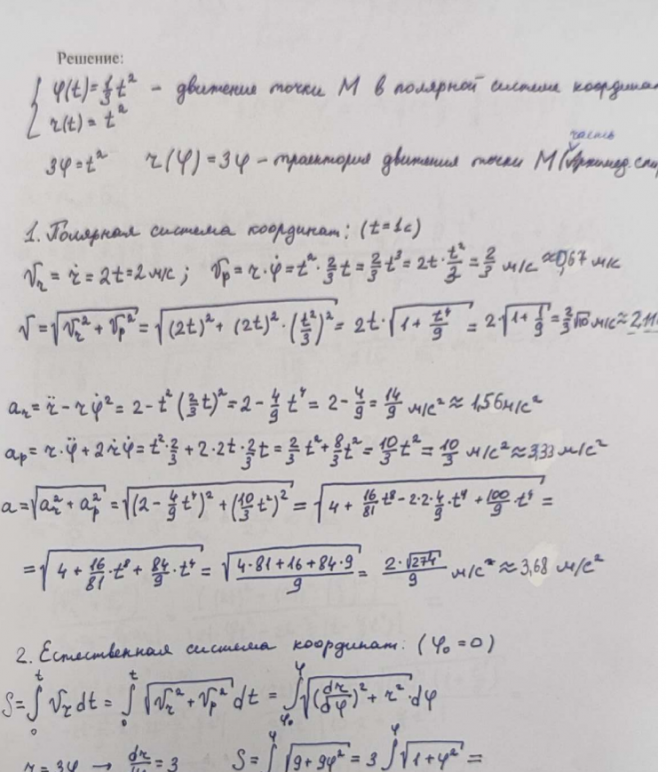 Решение:
{ φ(t) = 1/3 t² – движение точки М в полярной системе координат
r(t) = t²
3φ = t² r(φ) = 3φ – траектория движения точки М (часть Архимед. спир
1. Полярная система координат: (t = 1с)
Vr = ṙ = 2t = 2 м/с ; Vp = r·φ̇ = t²·2/3 t = 2/3 t³ = 2t·t²/3 = 2/3 м/с ≈ 0,67 м/с
V = √(Vr² + Vp²) = √((2t)² + (2t)²·(t²/3)²) = 2t·√(1 + t⁴/9) = 2√(1 + 1/9) = 2/3 √10 м/с ≈ 2,11
ar = r̈ − rφ̇² = 2 − t²(2/3 t)² = 2 − 4/9 t⁴ = 2 − 4/9 = 14/9 м/с² ≈ 1,56 м/с²
ap = r·φ̈ + 2ṙφ̇ = t²·2/3 + 2·2t·2/3 t = 2/3 t² + 8/3 t² = 10/3 t² = 10/3 м/с² ≈ 3,33 м/с²
a = √(ar² + ap²) = √((2 − 4/9 t⁴)² + (10/3 t²)²) = √(4 + 16/81 t⁸ − 2·2·4/9·t⁴ + 100/9·t⁴) =
= √(4 + 16/81·t⁸ + 84/9·t⁴) = √(4·81 + 16 + 84·9)/9 = 2·√274/9 м/с² ≈ 3,68 м/с²
2. Естественная система координат: (φ₀ = 0)
S = ∫₀ᵗ Vτ dt = ∫₀ᵗ √(Vr² + Vp²) dt = ∫φ₀^φ √((dr/dφ)² + r²) · dφ
r = 3φ → dr/dφ = 3 S = ∫^φ √(9 + 9φ²) = 3 ∫^φ √(1 + φ²) =